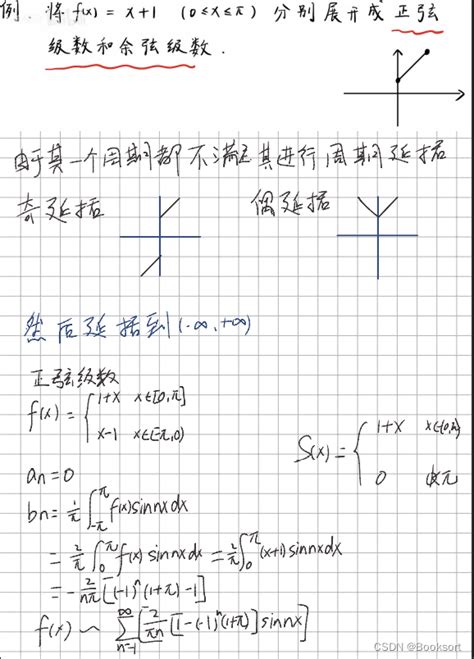 例. 将 f(x) = x+1 (0≤x≤π) 分别展开成 正弦
级数和余弦级数.
由于其一个周期都不满足其进行周期延拓
奇延拓 偶延拓
然后延拓到(-∞,+∞)
正弦级数
f(x) = { 1+x x∈[0,π]
x-1 x∈(-π,0)
S(x) = { 1+x
0
an=0
bn= 1/π ∫_{-π}^{π} f(x)sinnxdx
= 2/π ∫_0^π f(x) sinnxdx = 2/π ∫_0^π (x+1)sinnxdx
= -2/nπ [(-1)^n(1+π)-1]
f(x) ~ ∑_{n=1}^{∞} [2/πn [1-(-1)^n(1+π)] sinnx]
CSDN @Booksort